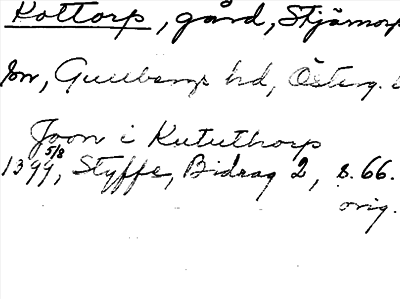 Kottorp, gård, Stjärnorp
sn, Gullbergs hd, Österg.
Joon i Kututhorp
1399 5/8, Styffe, Bidrag 2, s. 66.
orig.